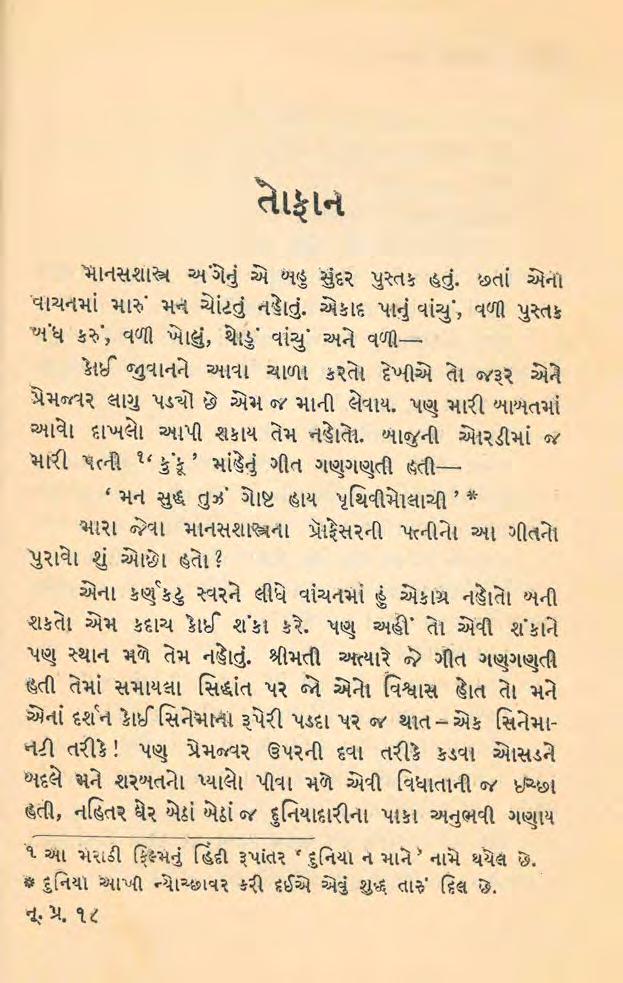 તોફાન
માનસશાસ્ત્ર અંગેનું એ બહુ સુંદર પુસ્તક હતું. છતાં એના
વાચનમાં મારું મન ચોંટતું નહોતું. એકાદ પાનું વાંચું, વળી પુસ્તક
બંધ કરું, વળી ખોલું, થોડું વાંચું અને વળી—
કોઈ જુવાનને આવા ચાળા કરતો દેખીએ તો જરૂર એને
પ્રેમજ્વર લાગુ પડ્યો છે એમ જ માની લેવાય. પણ મારી બાબતમાં
આવો દાખલો આપી શકાય તેમ નહોતો. બાજુની ઓરડીમાં જ
મારી પત્ની ૧‘ કુંકૂ ’ માંહેનું ગીત ગણગણતી હતી—
‘ મન સુદ્ધ તુઝં ગોષ્ટ હાય પૃથિવીમોલાચી ’ *
મારા જેવા માનસશાસ્ત્રના પ્રોફેસરની પત્નીનો આ ગીતનો
પુરાવો શું ઓછો હતો ?
એના કર્ણકટુ સ્વરને લીધે વાંચનમાં હું એકાગ્ર નહોતો બની
શકતો એમ કદાચ કોઈ શંકા કરે. પણ અહીં તો એવી શંકાને
પણ સ્થાન મળે તેમ નહોતું. શ્રીમતી અત્યારે જે ગીત ગણગણતી
હતી તેમાં સમાયલા સિદ્ધાંત પર જો એનો વિશ્વાસ હોત તો મને
એનાં દર્શન કોઈ સિનેમાના રૂપેરી પડદા પર જ થાત – એક સિનેમા-
નટી તરીકે ! પણ પ્રેમજ્વર ઉપરની દવા તરીકે કડવા ઓસડને
બદલે મને શરબતનો પ્યાલો પીવા મળે એવી વિધાતાની જ ઇચ્છા
હતી, નહિતર ઘેર બેઠાં બેઠાં જ દુનિયાદારીના પાકા અનુભવી ગણાય
૧ આ મરાઠી ફિલ્મનું હિંદી રૂપાંતર ‘ દુનિયા ન માને ’ નામે થયેલ છે.
* દુનિયા આખી ન્યોચ્છાવર કરી દઈએ એવું શુદ્ધ તારું દિલ છે.
નૂ. પ્ર. ૧૮